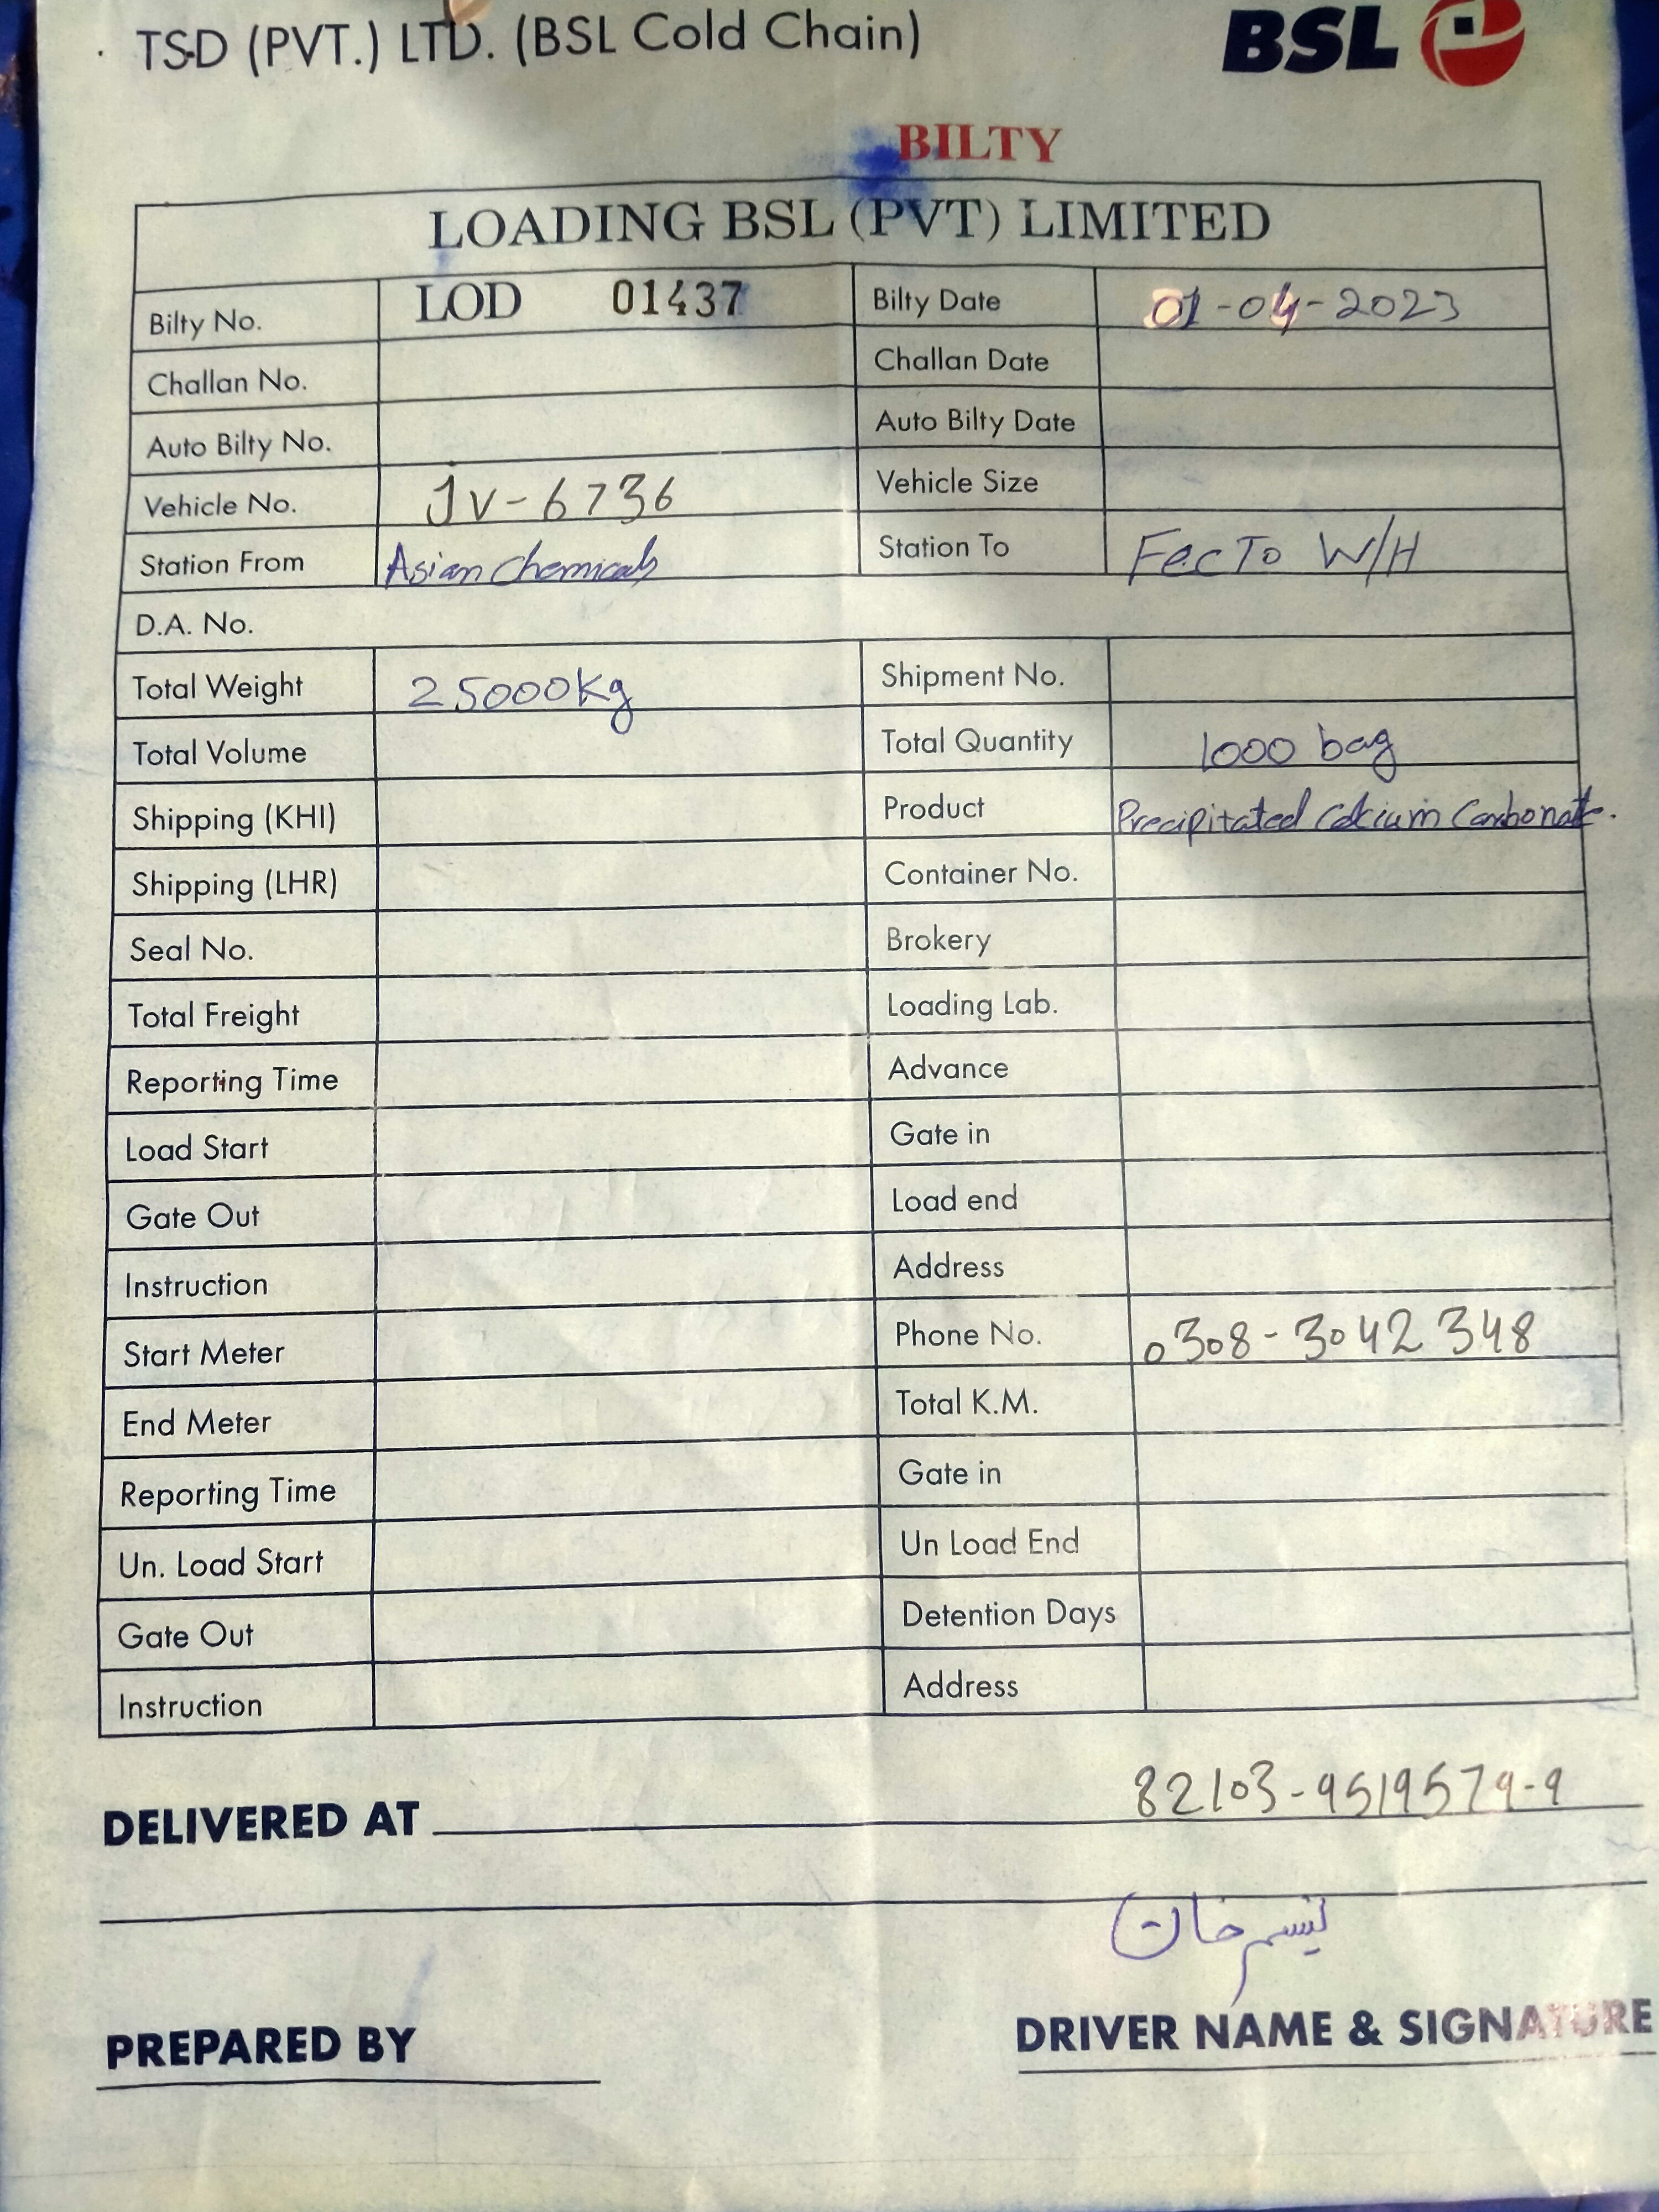 TSD (PVT.) LTD. (BSL Cold Chain)
BSL
BILTY
LOADING BSL (PVT) LIMITED
Bilty No. LOD 01437 Bilty Date 01-04-2023
Challan No. Challan Date
Auto Bilty No. Auto Bilty Date
Vehicle No. JV-6736 Vehicle Size
Station From Asian Chemicals Station To FecTo W/H
D.A. No.
Total Weight 25000Kg Shipment No.
Total Volume Total Quantity 1000 bag
Shipping (KHI) Product Precipitated Calcium Carbonate.
Shipping (LHR) Container No.
Seal No. Brokery
Total Freight Loading Lab.
Reporting Time Advance
Load Start Gate in
Gate Out Load end
Instruction Address
Start Meter Phone No. 0308-3042348
End Meter Total K.M.
Reporting Time Gate in
Un. Load Start Un Load End
Gate Out Detention Days
Instruction Address
DELIVERED AT 82103-9519579-9
خان
PREPARED BY DRIVER NAME & SIGNATURE